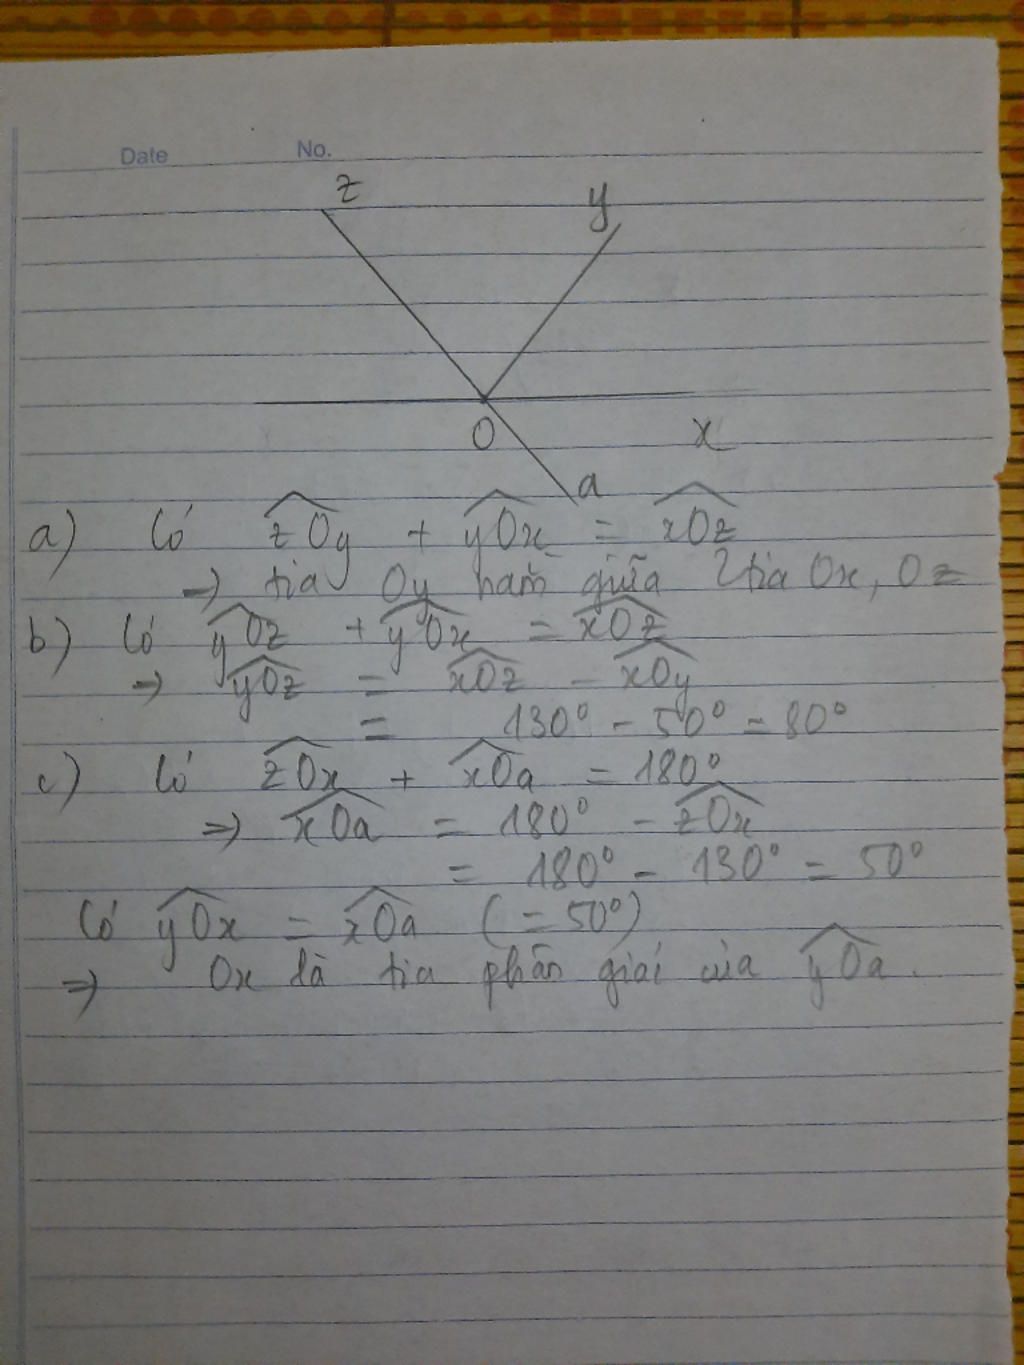 Date No.
z y
O x
a
a) Có zOy + yOx = xOz
→ tia Oy nằm giữa 2 tia Ox, Oz
b) Có yOz + yOx = xOz
→ yOz = xOz - xOy
= 130° - 50° = 80°
c) Có zOx + xOa = 180°
=> xOa = 180° - zOx
= 180° - 130° = 50°
Có yOx = xOa (= 50°)
=> Ox là tia phân giác của yOa.